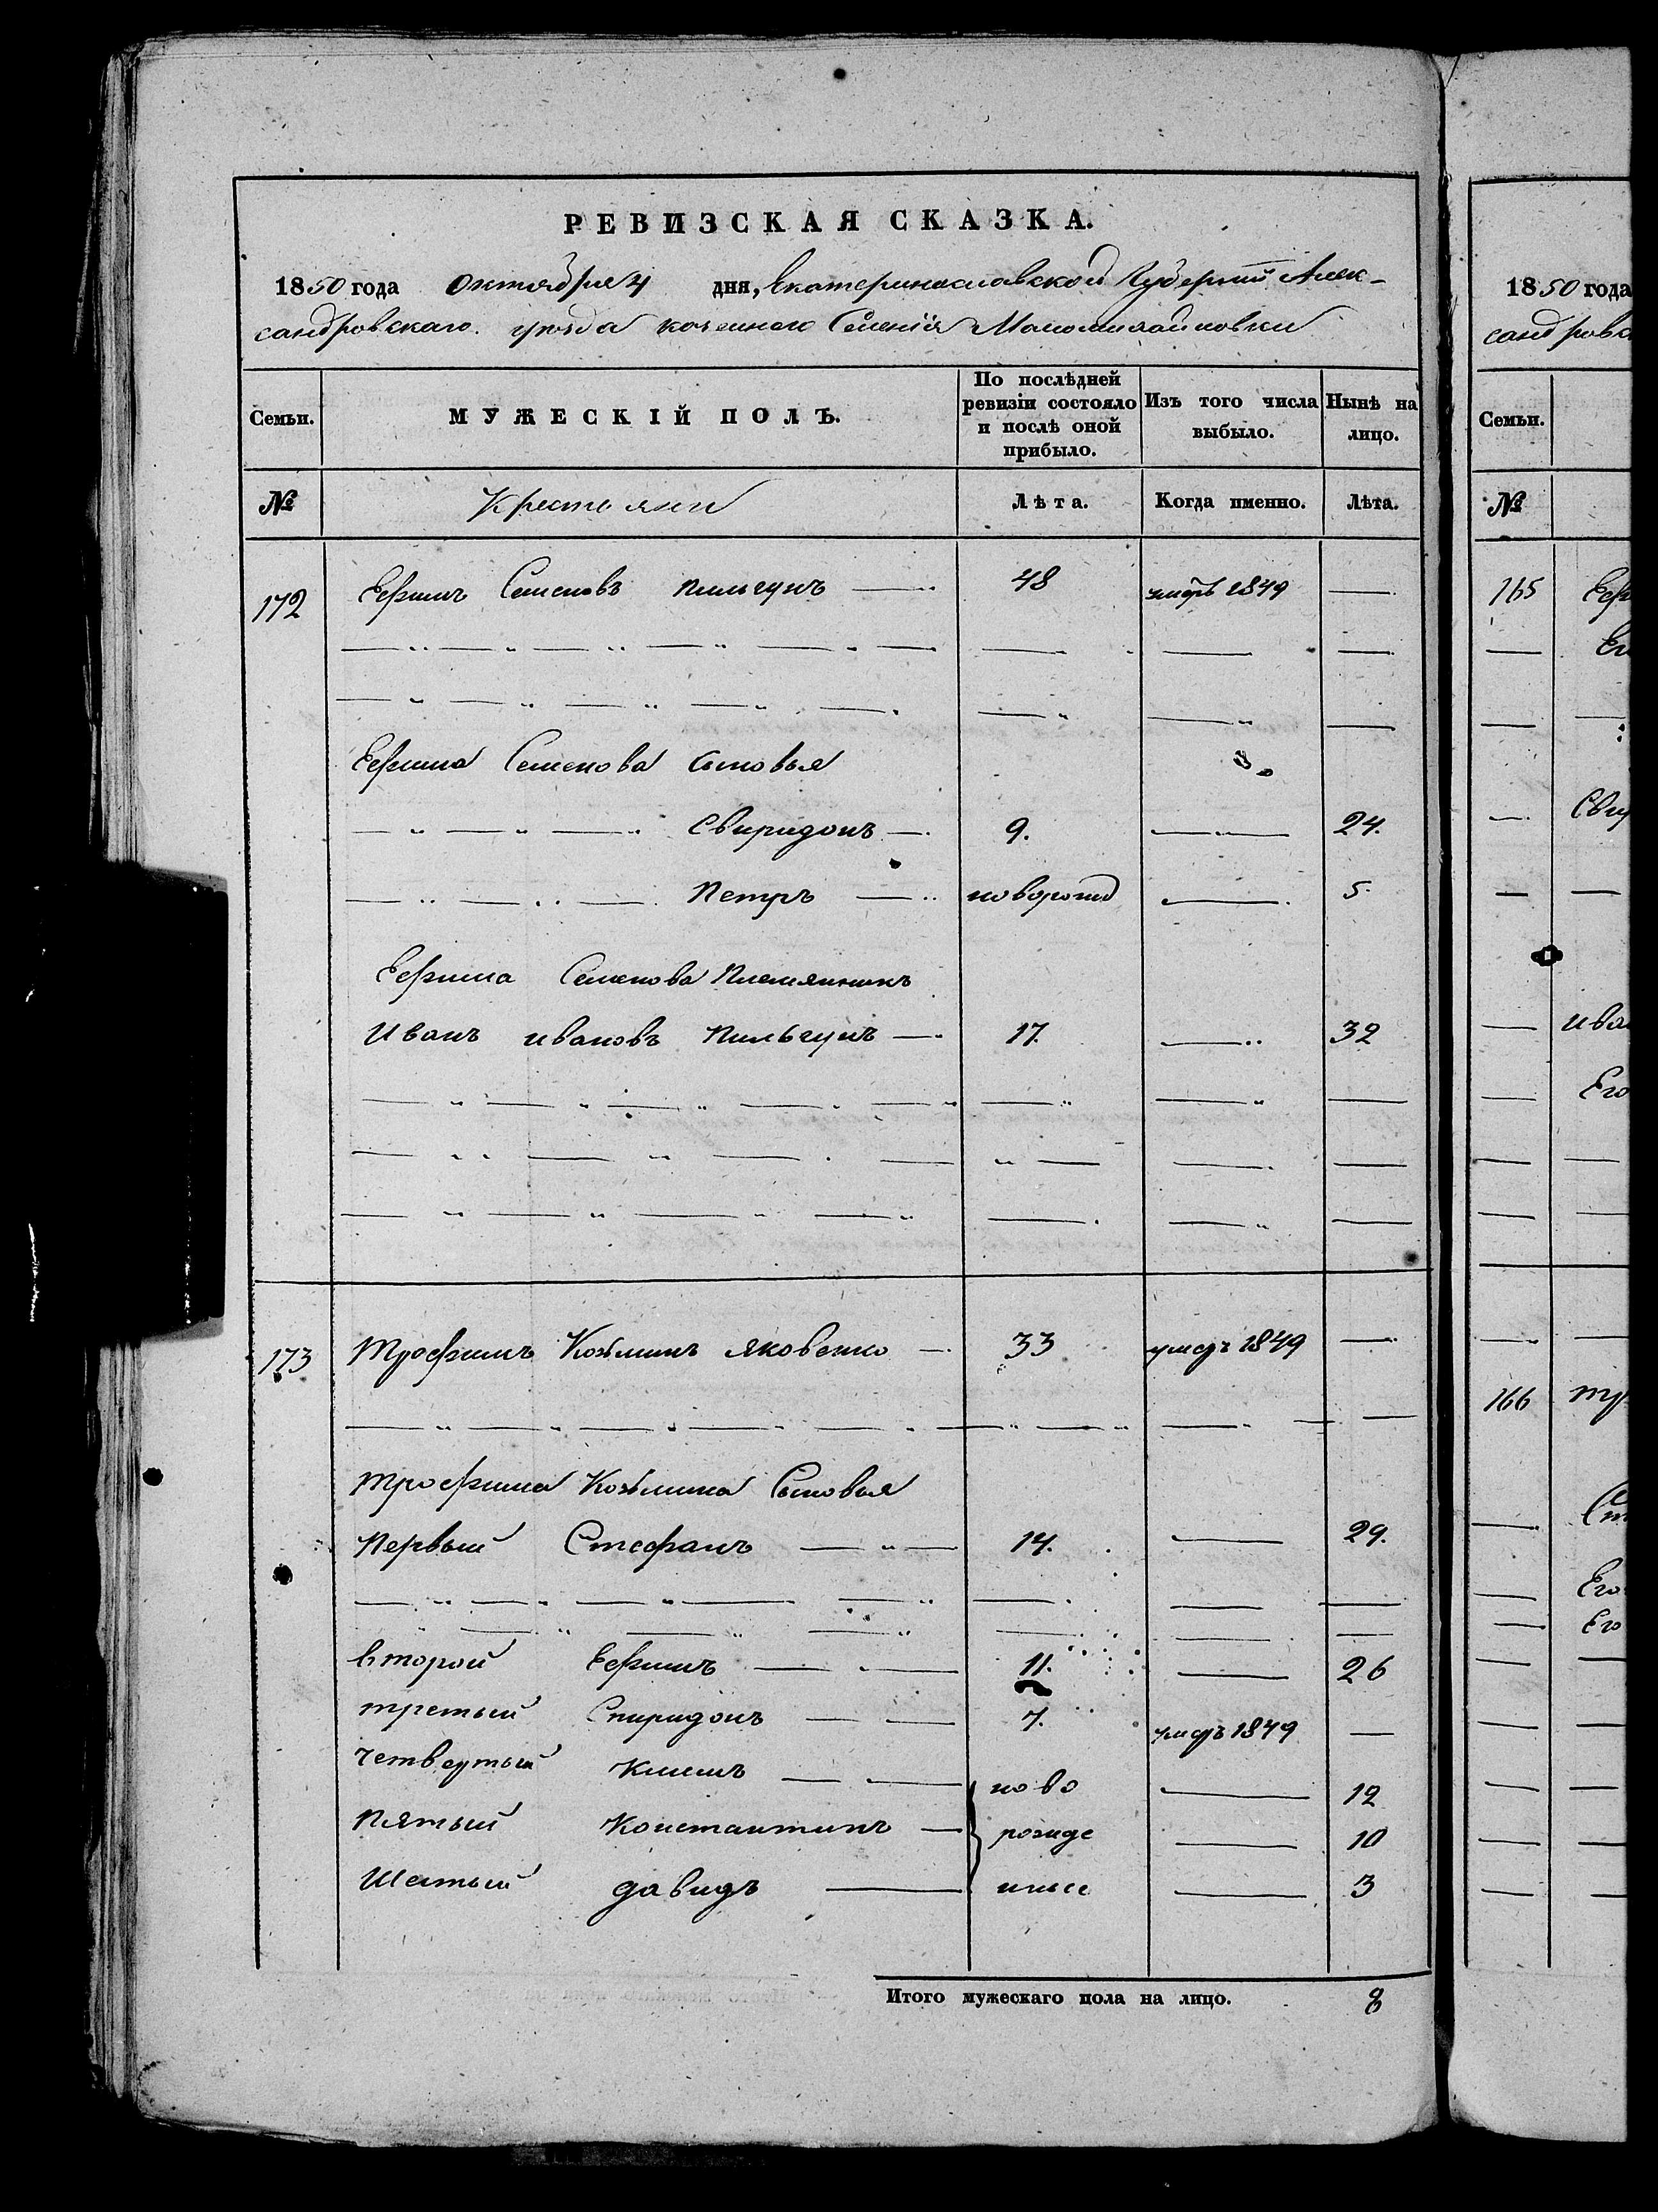 РЕВИЗСКАЯ СКАЗКА.
1850 года Октября 4 дня, Екатеринославской Губерніи Алек-
сандровскаго уезда казеннаго Селенія Маломихайловки
Семьи. МУЖЕСКІЙ ПОЛЪ. По послѣдней ревизіи состояло и послѣ оной прибыло. Изъ того числа выбыло. Нынѣ на лицо.
№ Крестьяни Лѣта. Когда именно. Лѣта.
172 Ефимъ Семеновъ Пильгунъ 48 умеръ 1849
Ефима Семенова Сыновья
Свиридонъ 9. 24.
Петръ новорожд 5.
Ефима Семенова Племянникъ
Иванъ Ивановъ Пильгунъ 17. 32
173 Трофимъ Козминъ Яковенко 33 умеръ 1849
Трофима Козмина Сыновья
Первый Стефанъ 14. 29.
второй Ефимъ 11. 26
третый Спиридонъ 7. умеръ 1849
четвертый Климъ ново 12
Пятый Константинъ рожде 10
Шестый Давидъ нные 3
Итого мужескаго пола на лицо. 8
1850 года
сандровск
Семьи.
№
165 Ефи
Ег
Сви
Ива
Его
166 Тр
Ст
Его
Его